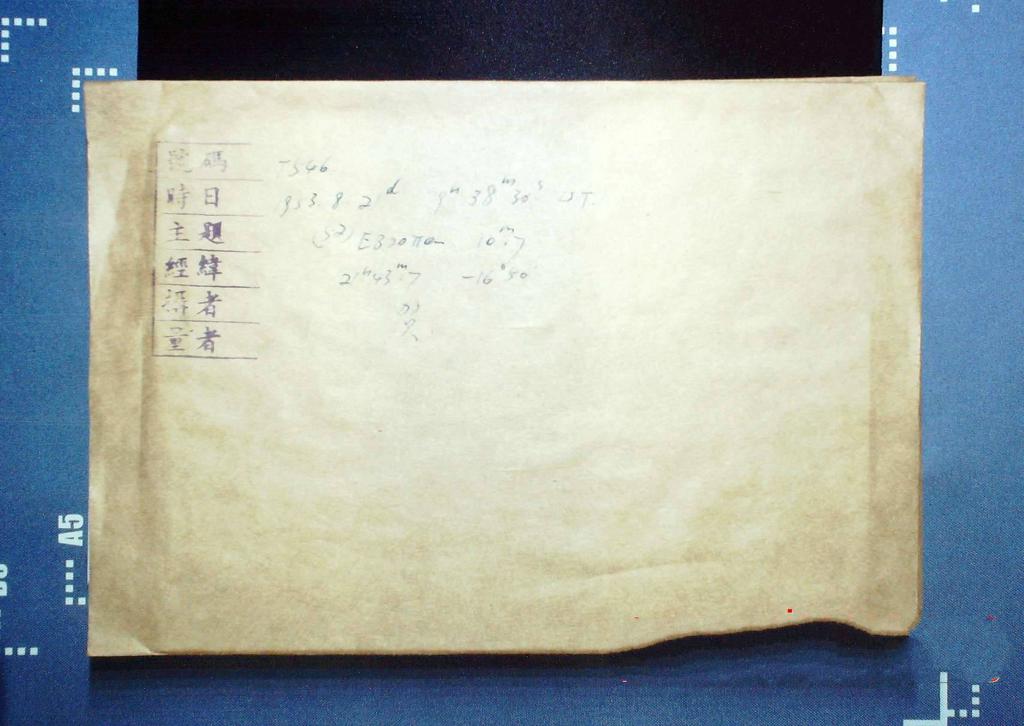 號碼 T546
時日 953.8 21ᵈ 9ʰ 38ᵐ 30ˢ UT.
主題 (52) Europa 10ᵐ.7
經緯 21ʰ43ᵐ.7 -16°50'
攝者
量者
A5